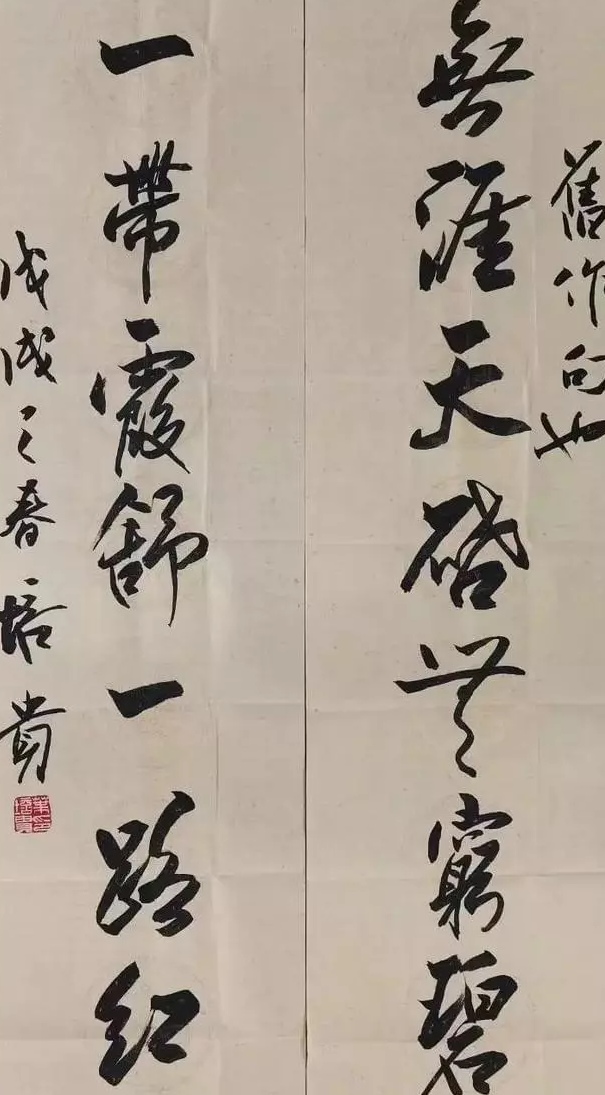 舊作句也
無涯天啓無窮碧
一帶霞舒一路紅
戊戌之春培貴